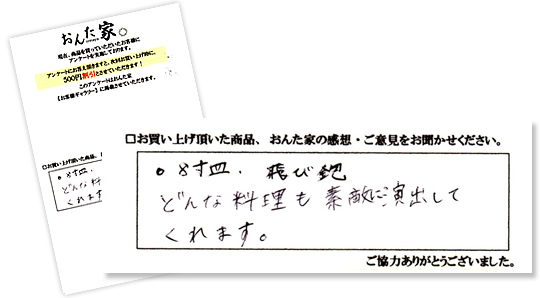 おんた家。
現在、商品を買っていただいたお客様に
アンケートを実施しております。
アンケートにお答え頂きますと、次回お買い上げ時に、
500円割引とさせていただきます!
このアンケートはおんた家
【お客様ギャラリー】に掲載させていただきます。
□お買い上げ頂いた商品、
○8寸皿.
どんな料
くれます
□お買い上げ頂いた商品、おんた家の感想・ご意見をお聞かせください。
○8寸皿. 飛び鉋
どんな料理も素敵に演出して
くれます。
ご協力ありがとうございました。